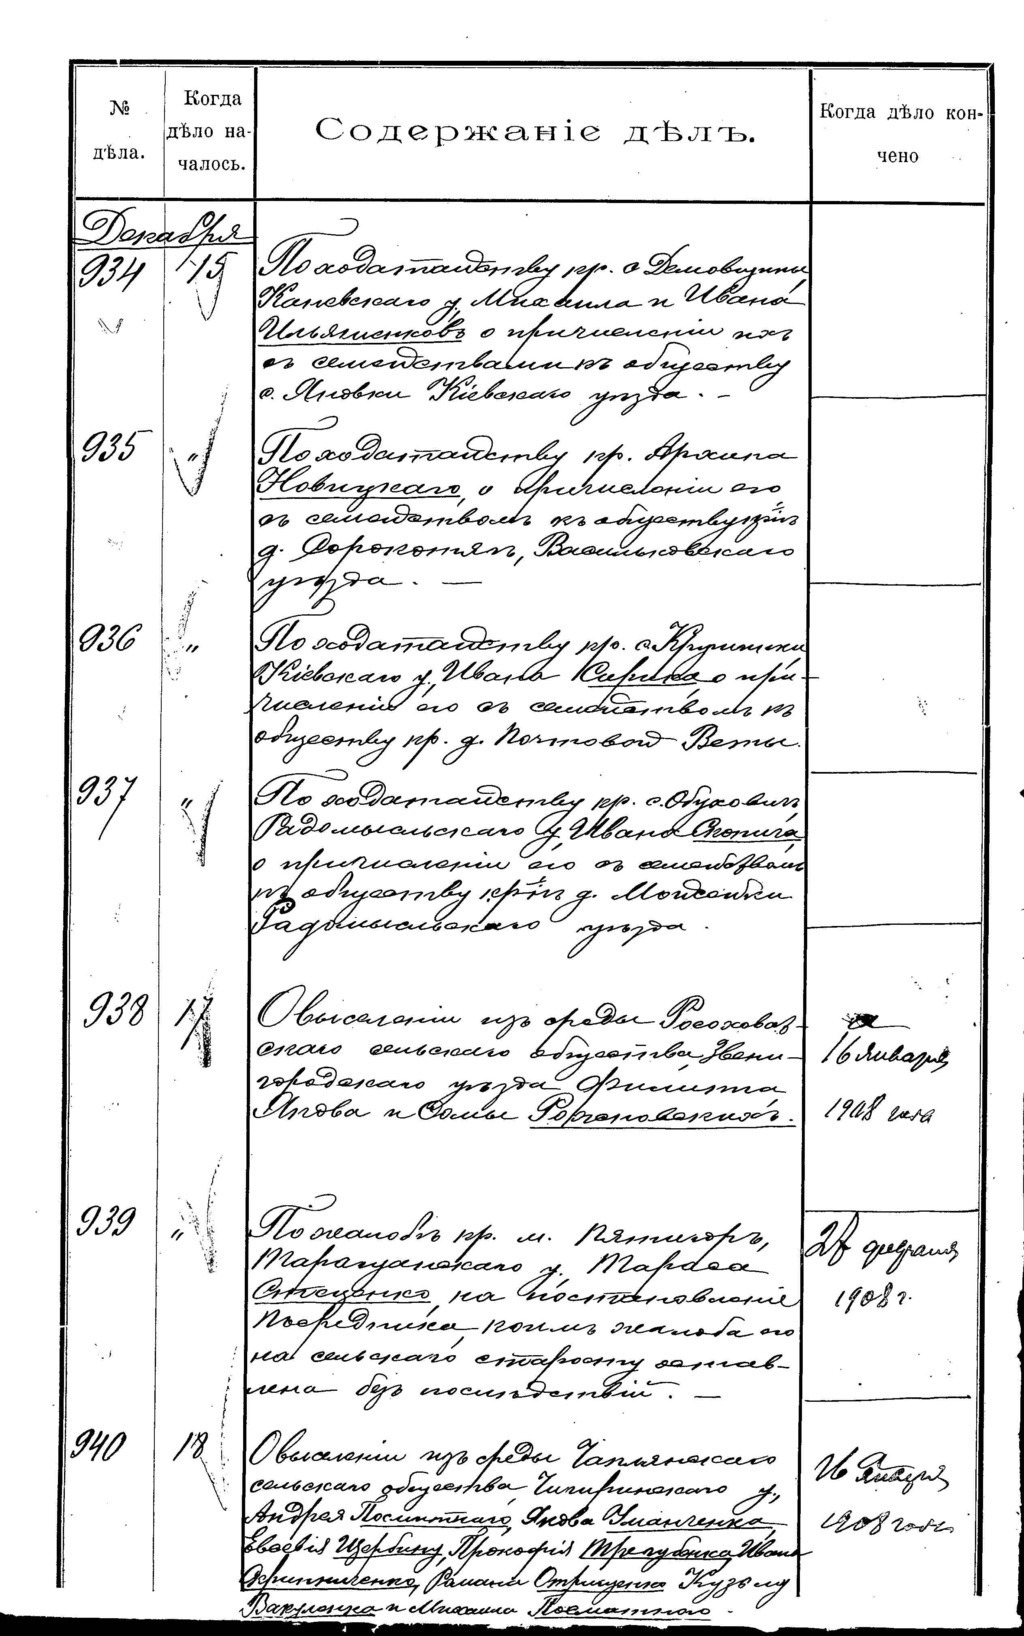 № дѣла.
Когда дѣло на-
чалось.
Содержаніе дѣлъ.
Когда дѣло кон-
чено
Декабря
934 15 По ходатайству кр. с. Демовщины
Каневскаго у. Михаила и Ивана
Ильяшенковъ о причисленіи ихъ
съ семействами къ обществу
с. Яновки Кіевскаго уѣзда. —
935 " По ходатайству кр. Архипа
Новицкаго, о причисленіи его
съ семействомъ къ обществу
д. Сорокотягъ, Васильковскаго
уѣзда. —
936 " По ходатайству кр. с.
Кіевскаго у., Ивана Сирика о при-
численіи его съ семействомъ къ
обществу кр. д. Почтовой Веты.
937 " По ходатайству кр. с. Обуховичъ
Радомысльскаго у. Ивана
о причисленіи его съ семействомъ
къ обществу д. Мойсейки
Радомысльскаго уѣзда.
938 17 О выселеніи изъ среды Росоховат-
скаго сельскаго общества Звени-
городскаго уѣзда Филиппа
Якова и Сомы
16 Января
1908 года
939 " По жалобѣ кр. м. Пятигоръ,
Таращанскаго у. Тараса
Стеценко, на постановленіе
Посредника, коимъ жалоба его
на сельскаго старосту остав-
лена безъ послѣдствій. —
27 февраля
1908 г.
940 18 О выселеніи изъ среды
сельскаго общества, Чигиринскаго у.,
Андрея Якова Уманченко,
Евсевія Щербину, Прокофія Трегубенка, Ивана
Романа Отрищенка Кузьму
Вакуленка и Михаила
16 Января
1908 года